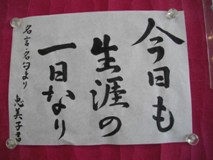 今日も
生涯の
一日なり
名言名句より
恵美子書